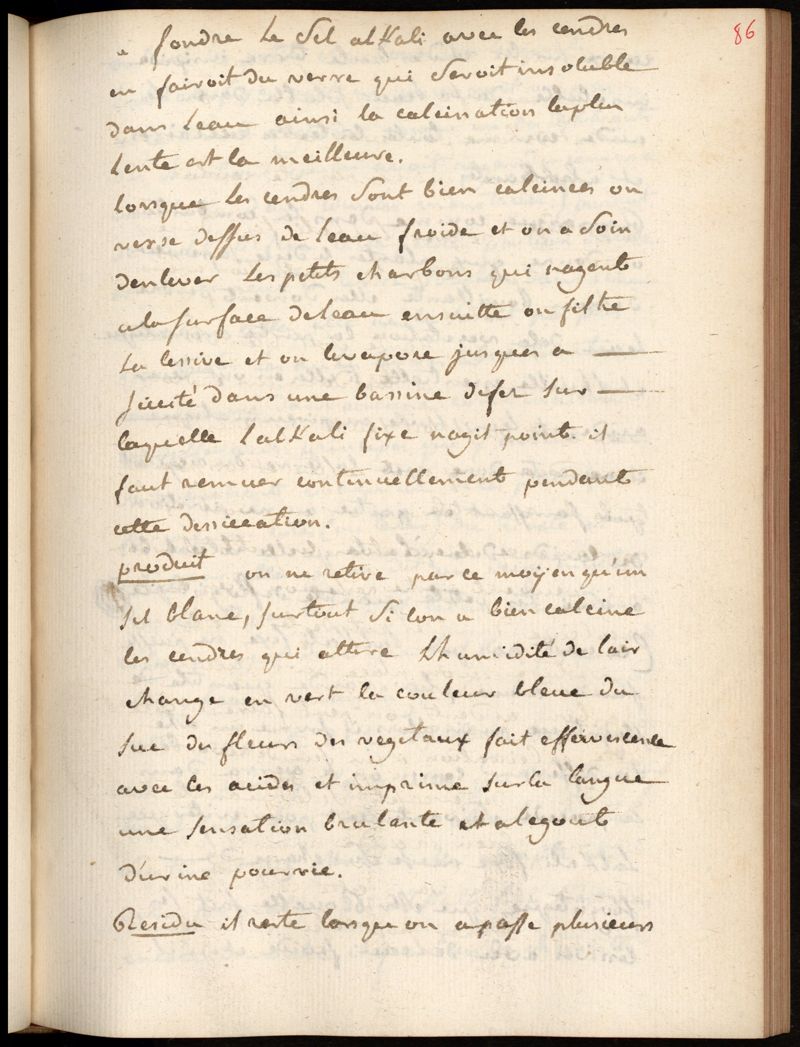 86
a fondre le Sel alKali avec les cendres
en fairoit du verre qui Seroit insoluble
dans leau ainsi la calcination laplus
lente est la meilleure.
lorsque les cendres Sont bien calcinées on
verse dessus de leau froide et on a Soin
denlever les petits charbons qui nagent
alasurface deleau ensuitte on filtre
la lessive et on levapore jusques a
siccité dans une bassine defer sur
laquelle lalKali fixe nagit point il
faut remuer continuellement pendant
cette dessiccation.
produit on ne retire par ce moyen qu'un
sel blanc, surtout Si lon a bien calciné
les cendres qui attire Lhumidité de lair
change en vert la couleur bleue du
suc des fleurs des vegetaux fait effervescence
avec les acides et imprime surla langue
une sensation brulante et alegout
d'urine pourrie.
Residu il reste lorsque on apassé plusieurs